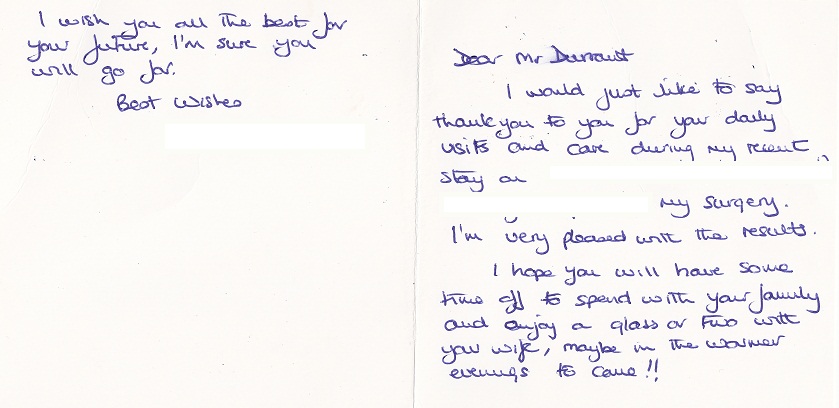 Dear Mr Durrant
I would just like to say
thankyou to you for your daily
visits and care during my recent
stay on
my surgery.
I'm very pleased with the results.
I hope you will have some
time off to spend with your family
and enjoy a glass or two with
your wife, maybe in the warmer
evenings to come!!
I wish you all the best for
your future, I'm sure you
will go far.
Best Wishes